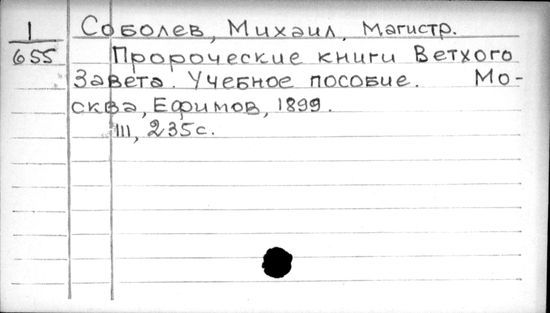 1 Соболев, Михаил, Магистр.
655 Пророческие книги Ветхого
Завета. Учебное пособие. Мо-
сква, Ефимов, 1899.
III, 235 с.